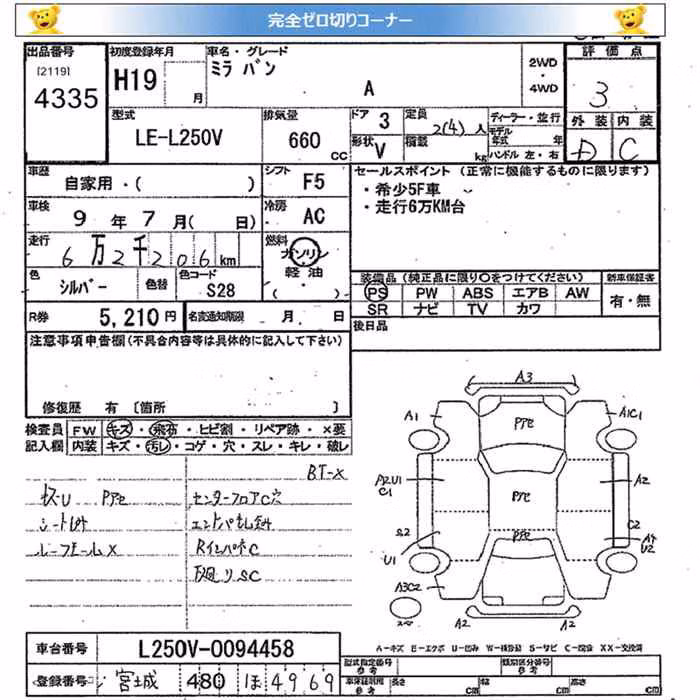 完全ゼロ切りコーナー
出品番号 初度登録年月 車名・グレード 評価点
[2119] ミラ バン 2WD
4335 H19 月 A ・ 3
4WD
型式 排気量 ドア 3 定員 2(4)人 ディーラー・並行 外装 内装
LE-L250V 660 CC 形状 V 積載 kg モデル年式 年 D C
ハンドル 左・右
車歴 シフト セールスポイント (正常に機能するものに限ります)
自家用・( ) F5 ・希少5F車
車検 9年7月( 日) 冷房 AC ・走行6万KM台
走行 6万2千206km 燃料 ガソリン
軽油
( )
色 シルバー 色替 色コード S28
装備品 (純正品に限り○をつけてください) 新車保証書
PS PW ABS エアB AW 有・無
SR ナビ TV カワ
R券 5,210円 名変通知期限 月 日
後日品
注意事項申告欄(不具合内容等は具体的に記入して下さい)
修復歴 有 〔箇所 〕
検査員 FW キズ・飛石・ヒビ割・リペア跡・×要
記入欄 内装 キズ・汚レ・コゲ・穴・スレ・キレ・破レ
BT-X
センターフロアC穴
RインパネC
下廻りSC
A3
A1 A1C1
A2U1 A2
C1
S2 C2
U1 U2
A3C2 A2
A2
A-キズ E-エクボ U-凹み W-補修跡 S-サビ C-腐食 XX-交換済
車台番号 L250V-0094458
登録番号 宮城 480 ほ 4969
型式指定番号 参考 類別区分番号 参考
長さ cm 幅 cm 高さ cm